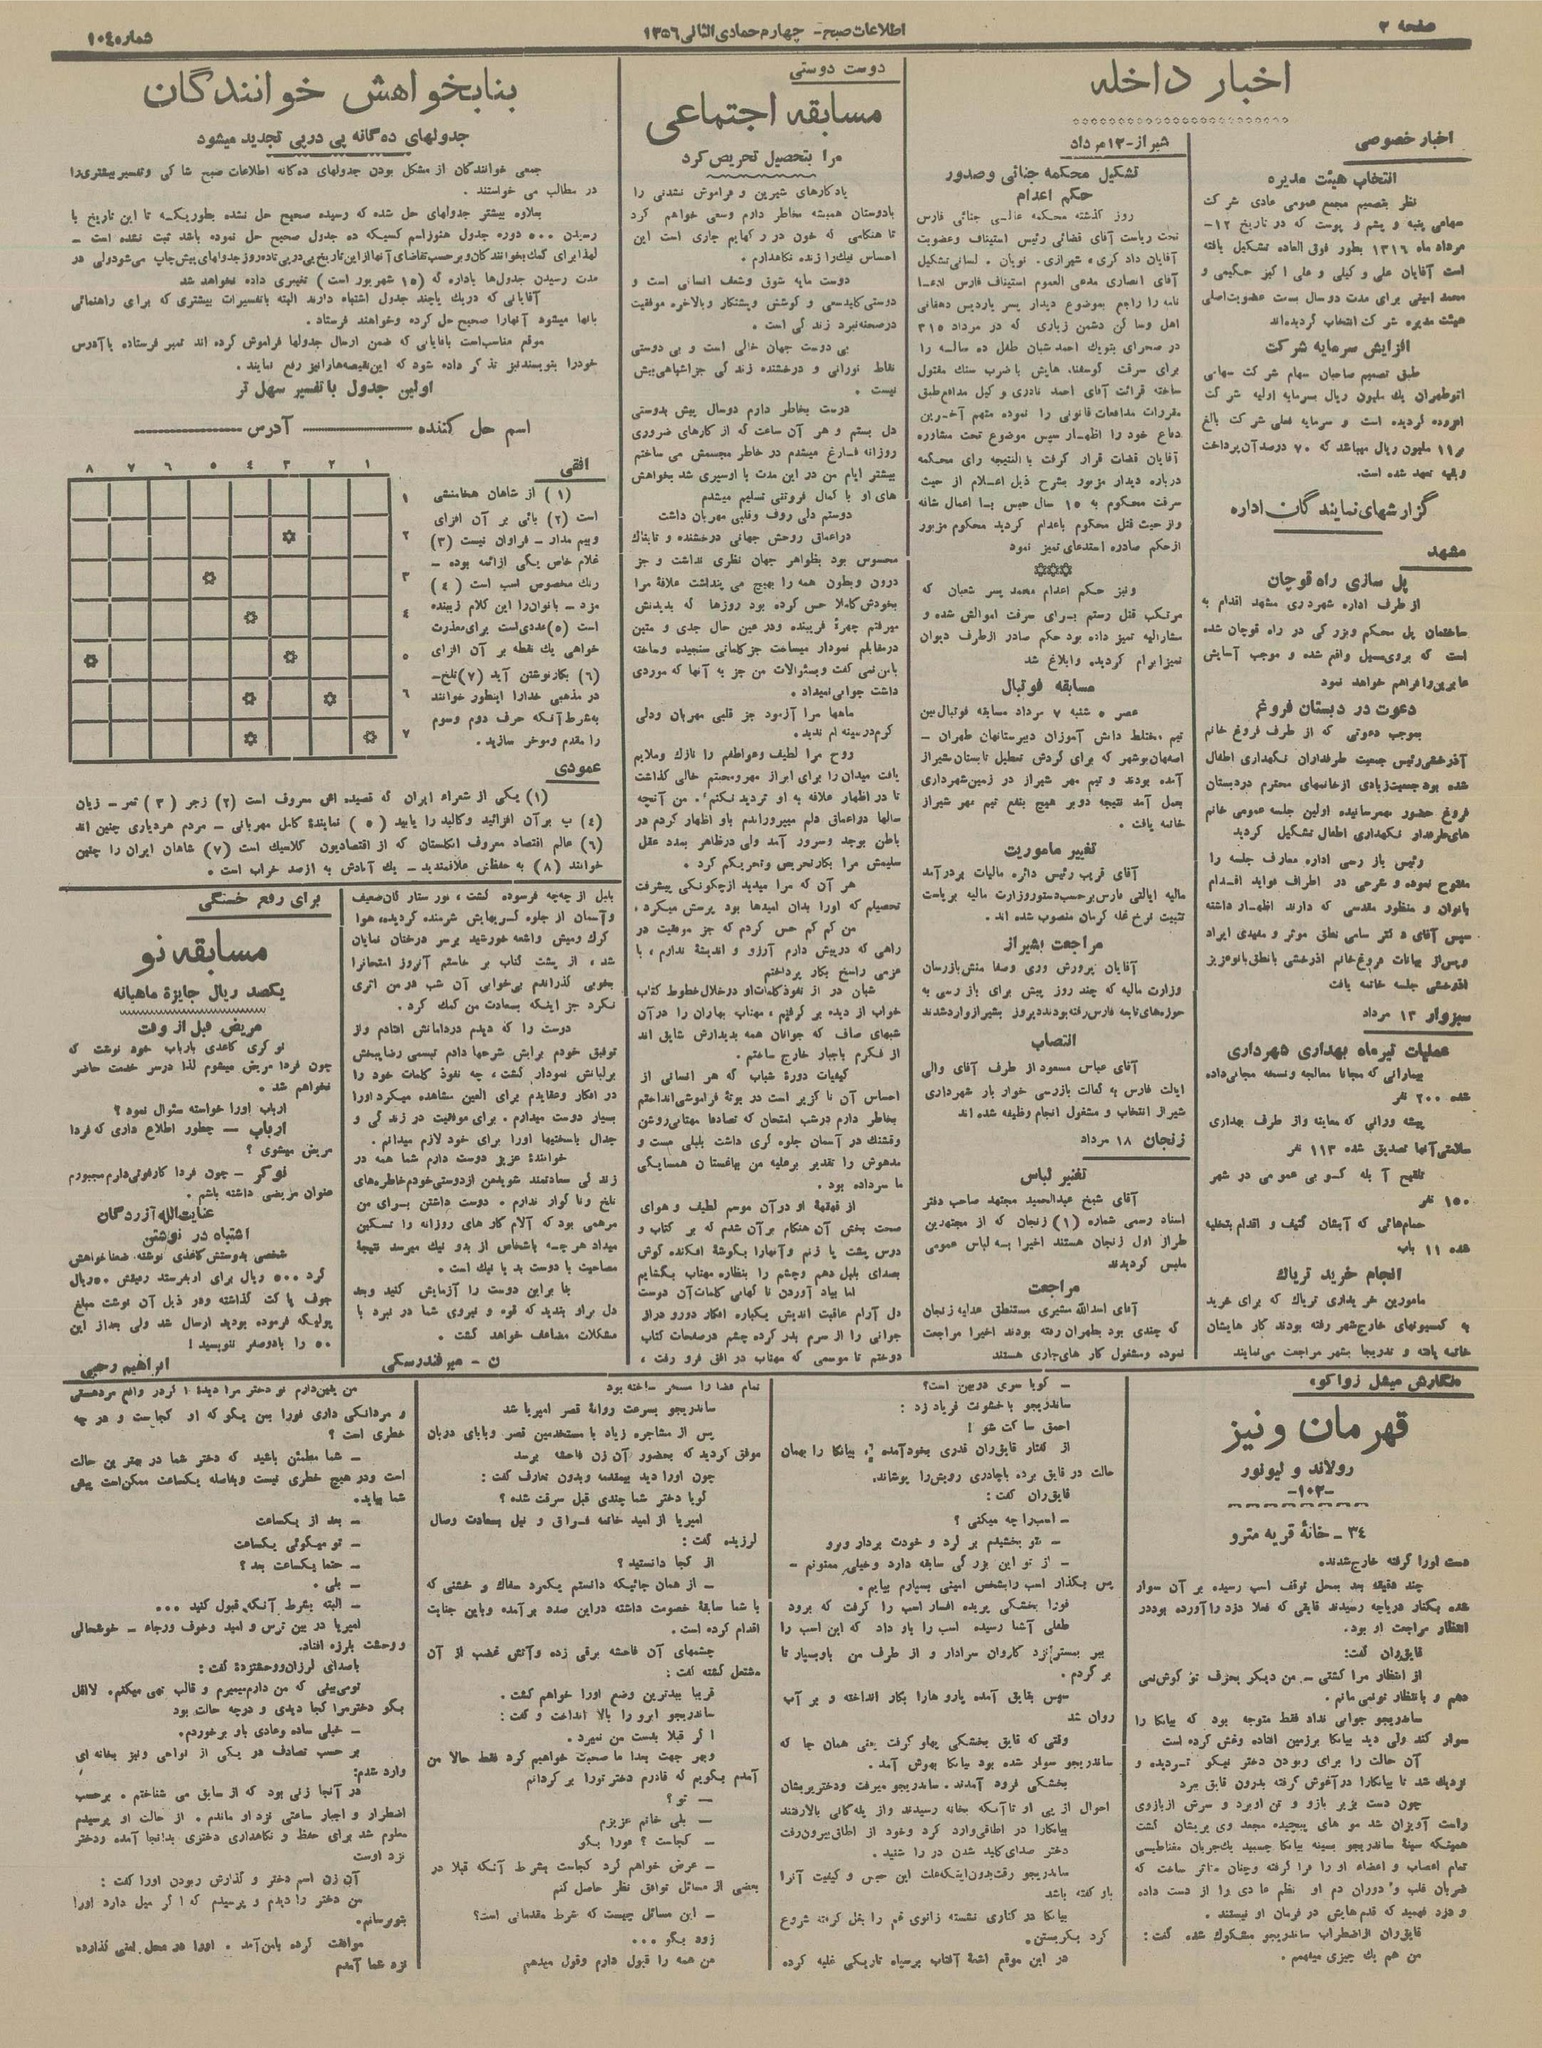 صفحه ۲
اطلاعات صبح - چهارم جمادی الثانی ۱۳۵۶
شماره ۱۰۴۰
اخبار داخله
اخبار خصوصی
انتخاب هیئت مدیره
نظر بتصمیم مجمع عمومی عادی شرکت
سهامی پنبه و پشم و پوست که در تاریخ ۱۲-
مرداد ماه ۱۳۱۶ بطور فوق العاده تشکیل یافته
است آقایان علی وکیلی و علی اکبر حکیمی و
محمد امینی برای مدت دو سال بسمت عضویت اصلی
هیئت مدیره شرکت انتخاب گردیده‌اند
افزایش سرمایه شرکت
طبق تصمیم صاحبان سهام شرکت سهامی
اتوطهران یك ملیون ریال بسرمایه اولیه شرکت
افزوده گردیده است و سرمایه فعلی شرکت بالغ
ملیون ریال میباشد که ۷۰ درصد آن پرداخت
وبقیه تعهد شده است.
گزارشهای نمایندگان اداره
مشهد
پل سازی راه قوچان
از طرف اداره شهرداری مشهد اقدام به
ساختمان پل محکم و بزرگی در راه قوچان شده
است که بروی مسیل واقع شده و موجب آسایش
عابرین را فراهم خواهد نمود
دعوت در دبستان فروغ
بموجب دعوتی که از طرف فروغ خانم
آذرخشی رئیس جمعیت طرفداران نگهداری اطفال
شده بود جمعیت زیادی از خانمهای محترم در دبستان
فروغ حضور بهمرسانیده اولین جلسه عمومی خانم
های طرفدار نگهداری اطفال تشکیل گردید
رئیس بازرسی اداره معارف جلسه را
مفتوح نموده و شرحی در اطراف فواید اقدام
بانوان و منظور مقدسی که دارند اظهار داشته
سپس آقای دکتر سامی نطق موثر و مفیدی ایراد
و پس از بیانات فروغ خانم آذرخشی با نطق بانو عزیز
آذرخشی جلسه خاتمه یافت
سبزوار ۱۳ مرداد
عملیات تیرماه بهداری شهرداری
بیمارانی که مجانا معالجه و نسخه مجانی داده
شده ۲۰۰ نفر
پیشه ورانی که معاینه و از طرف بهداری
سلامتی آنها تصدیق شده ۱۱۳ نفر
تلقیح آبله کوبی عمومی در شهر
۱۵۰ نفر
حمام‌هائی که آبشان کثیف و اقدام بتخلیه
شده ۱۱ باب
انجام خرید تریاك
مامورین خریداری تریاك که برای خرید
به کمیسیونهای خارج شهر رفته بودند کارهایشان
خاتمه یافته و تدریجا بشهر مراجعت می‌نمایند
شیراز - ۱۳ مرداد
تشکیل محکمه جنائی و صدور
حکم اعدام
روز گذشته محکمه عالی جنائی فارس
تحت ریاست آقای فضائی رئیس استیناف و عضویت
آقایان دادگر، شیرازی، نوبان، لسانی تشکیل
آقای انصاری مدعی العموم استیناف فارس ادعا
نامه را راجع بموضوع دیدار پسر یاردیس دهقانی
اهل و ساکن دشمن زیاری که در مرداد ۳۱۵
در صحرای بتویك احمد شبان طفل ده ساله را
برای سرقت گوسفندهایش با ضرب سنك مقتول
ساخته قرائت آقای احمد نادری وکیل مدافع طبق
مقررات مدافعات قانونی را نموده متهم آخرین
دفاع خود را اظهار سپس موضوع تحت مشاوره
آقایان قضات قرار گرفت بالنتیجه رای محکمه
درباره دیدار مزبور بشرح ذیل اعلام از حیث
سرقت محکوم به ۱۵ سال حبس با اعمال شاقه
و از حیث قتل محکوم باعدام گردید محکوم مزبور
از حکم صادره استدعای تمیز نمود
ونیز حکم اعدام محمد پسر شعبان که
مرتکب قتل رستم برای سرقت اموالش شده و
مشارالیه تمیز داده بود حکم صادر از طرف دیوان
تمیز ابرام گردیده و ابلاغ شد
مسابقه فوتبال
عصر ۵ شنبه ۷ مرداد مسابقه فوتبال بین
تیم مختلط دانش آموزان دبیرستانهای طهران -
اصفهان بوشهر که برای گردش تعطیل تابستان شیراز
آمده بودند و تیم مهر شیراز در زمین شهرداری
بعمل آمد نتیجه دو بر هیچ بنفع تیم مهر شیراز
خاتمه یافت.
تغییر ماموریت
آقای قریب رئیس دائره مالیات بردرآمد
مالیه ایالتی فارس برحسب دستور وزارت مالیه بریاست
تثبیت نرخ غله کرمان منصوب شده اند.
مراجعت بشیراز
آقایان پرورش وری وصفا منش بازرسان
وزارت مالیه که چند روز پیش برای بازرسی به
حوزه‌های تابعه فارس رفته بودند دیروز بشیراز وارد شدند
انتصاب
آقای عباس مسعود از طرف آقای والی
ایالت فارس به کفالت بازرسی خواربار شهرداری
شیراز انتخاب و مشغول انجام وظیفه شده اند
زنجان ۱۸ مرداد
تغییر لباس
آقای شیخ عبدالحمید مجتهد صاحب دفتر
اسناد رسمی شماره (۱) زنجان که از مجتهدین
طراز اول زنجان هستند اخیرا به لباس عمومی
ملبس گردیدند
مراجعت
آقای اسدالله مشیری مستنطق عدلیه زنجان
که چندی بود بطهران رفته بودند اخیرا مراجعت
نموده و مشغول کارهای جاری هستند
دوست دوستی
مسابقه اجتماعی
مرا بتحصیل تحریص کرد
یادکارهای شیرین و فراموش نشدنی را
بادوستان همیشه بخاطر دارم وسعی خواهم کرد
تا هنگامی که خون در رگهایم جاری است این
احساس نیك را زنده نگاهدارم.
دوست مایه شوق و شعف انسانی است و
دوستی کلید سعی و کوشش و پشتکار و بالاخره موفقیت
در صحنه نبرد زندگی است.
بی دوست جهان خالی است و بی دوستی
نقاط نورانی و درخشنده زندگی جز اشباهی بیش
نیست.
درست بخاطر دارم دو سال پیش بدوستی
دل بستم و هر آن ساعت که از کارهای ضروری
روزانه فارغ میشدم در خاطر مجسمش می ساختم
بیشتر ایام من در این مدت با او سپری شد بخواهش
های او با کمال فروتنی تسلیم میشدم
دوستم دلی روف و قلبی مهربان داشت
در اعماق روحش جهانی درخشنده و تابناك
محسوس بود بظواهر جهان نظری نداشت و جز
درون و بطون همه را بهیچ می پنداشت علاقهٔ مرا
بخودش کاملا حس کرده بود روزها که بدیدنش
میرفتم چهرهٔ فریبنده و در عین حال جدی و متین
در مقابلم نمودار میساخت جز کلماتی سنجیده و ساخته
با من نمی گفت و بسئوالات من جز به آنها که موردی
داشت جوابی نمیداد.
ماهها مرا آزمود جز قلبی مهربان و دلی
گرم در سینه ام ندید.
روح مرا لطیف و عواطفم را نازك و ملایم
یافت میدان را برای ابراز مهر و محبتم خالی گذاشت
تا در اظهار علاقه به او تردید نکنم. من آنچه
سالها در اعماق دلم میپرورانیدم باو اظهار کردم در
باطن بوجد و سرور آمد ولی در ظاهر بمدد عقل
سلیمش مرا بکار تحریص و تحریکم کرد.
هر آن که مرا میدید از چگونگی پیشرفت
تحصیلم که او را بدان امیدها بود پرسش میکرد.
من کم کم حس کردم که جز موفقیت در
راهی که در پیش دارم آرزو و اندیشهٔ ندارم، با
عزمی راسخ بکار پرداختم
شبان دراز نفوذ کلمات او در خلال خطوط کتاب
خواب از دیده بر گرفتم، مهتاب بهاران را در آن
شبهای صاف که جوانان همه بدیدارش شایق اند
از فکرم باجبار خارج ساختم.
کیفیات دورهٔ شباب که هر انسانی از
احساس آن ناگزیر است در بوتهٔ فراموشی انداختم
بخاطر دارم در شب امتحان که تصادفا مهتابی روشن
وقشنك در آسمان جلوه گری داشت بلبلی مست و
مدهوش را تقدیر بر علیه من بباغستان همسایگی
ما سرداده بود.
از قهقههٔ او در آن موسم لطیف و هوای
صحت بخش آن هنگام بر آن شدم که بر کتاب و
درس پشت پا زنم و آنها را بگوشهٔ افکنده گوش
بصدای بلبل دهم و چشم را بنظاره مهتاب بگشایم
اما بیاد آوردن ناگهانی کلمات آن دوست
دل آرام عاقبت اندیش یکباره افکار دور و دراز
جوانی را از سرم بدر کرده چشم در صفحات کتاب
دوختم تا موسمی که مهتاب در افق فرو رفت،
بلبل از چه‌چه فرسوده گشت، نور ستارگان ضعیف
و آسمان از جلوه گریهایش شرمنده گردیده، هوا
گرك ومیش و اشعه خورشید بر سر درختان نمایان
شد، از پشت کتاب بر خاستم آنروز امتحانرا
بخوبی گذراندم بی‌خوابی آن شب در من اثری
نکرد جز اینکه بسعادت من کمك کرد.
دوست را که دیدم در دامانش افتادم و از
توفیق خودم برایش شرحها دادم تبسمی رضایبخش
بر لبانش نمودار گشت، چه نفوذ کلمات خود را
در افکار و عقایدم برای العین مشاهده میکرد او را
بسیار دوست میدارم. برای موفقیت در زندگی و
جدال با سختیها او را برای خود لازم میدانم.
خوانندهٔ عزیز دوست دارم شما همه در
زندگی سعادتمند شوید من از دوستی خودم خاطره‌های
تلخ و ناگوار ندارم. دوست داشتن برای من
مرهمی بود که آلام کارهای روزانه را تسکین
میداد هر چه باشخاص از بدو نیك میرسد نتیجهٔ
مصاحبت با دوست بد یا نیك است.
بنا براین دوست را آزمایش کنید و بعد
دل براو بندید که قوه و نیروی شما در نبرد با
مشکلات مضاعف خواهد گشت.
ن - میرفندرسکی
بنا بخواهش خوانندگان
جدولهای ده گانه پی در پی تجدید میشود
جمعی خوانندگان از مشکل بودن جدولهای ده گانه اطلاعات صبح شاکی و تفسیر بیشتری را
در مطالب می خواستند.
بعلاوه بیشتر جدولهای حل شده که رسیده صحیح حل نشده بطوریکه تا این تاریخ با
رسیدن ۵۰۰ دوره جدول هنوز اسم کسیکه ده جدول صحیح حل نموده باشد ثبت نشده است -
لهذا برای کمك بخوانندگان و برحسب تقاضای آنها از این تاریخ پی در پی تا ده روز جدولهای پیش چاپ می‌شود ولی در
مدت رسیدن جدول‌ها باداره که (۱۵ شهریور است) تغییری داده نخواهد شد
آقایانی که در یك یا چند جدول اشتباه دارند البته با تفسیرات بیشتری که برای راهنمائی
بآنها میشود آنها را صحیح حل کرده و خواهند فرستاد.
موقع مناسب است بآقایانی که ضمن ارسال جدولها فراموش کرده اند تمبر فرستاده یا آدرس
خود را بنویسند نیز تذکر داده شود که این نقیصه‌ها را نیز رفع نمایند.
اولین جدول با تفسیر سهل تر
اسم حل کننده ــــــــ آدرس ــــــــ
۱ ۲ ۳ ۴ ۵ ۶ ۷ ۸
۱
۲
۳
۴
۵
۶
۷
افقی
(۱) از شاهان هخامنشی
است (۲) بائی بر آن افزای
وبیم مدار - فراوان نیست (۳)
غلام خاص یکی از ائمه بوده -
رنك مخصوص اسب است (۴)
مزد - بانوان را این کلام زیبنده
است (۵) عددی است برای معذرت
خواهی یك نقطه بر آن افزای
(۶) بکار نوشتن آید (۷) تلخ -
در مذهبی خدا را اینطور خوانند
به شرط آنکه حرف دوم و سوم
را مقدم و موخر سازید.
عمودی
(۱) یکی از شعراء ایران که قصیده اش معروف است (۲) زجر (۳) ثمر - زیان
(۴) ب بر آن افزائید و کالبد را یابید (۵) نمایندهٔ کامل مهربانی - مردم هر دیاری چنین اند
(۶) عالم اقتصاد معروف انگلستان که از اقتصادیون کلاسیك است (۷) شاهان ایران را چنین
خوانند (۸) به حفظش علاقمندید - یك آبادش به از صد خراب است.
برای رفع خستگی
مسابقه نو
یکصد ریال جایزهٔ ماهیانه
مریض قبل از وقت
نوکری کاغذی بارباب خود نوشت که
چون فردا مریض میشوم لذا درسر خدمت حاضر
نخواهم شد.
ارباب او را خواسته سئوال نمود؟
ارباب - چطور اطلاع داری که فردا
مریض میشوی؟
نوکر - چون فردا کار فوتی دارم مجبورم
عنوان مریضی داشته باشم.
عنایت‌الله آزردگان
اشتباه در نوشتن
شخصی بدوستش کاغذی نوشته ضمنا خواهش
کرد ۵۰۰ ریال برای او بفرستد رفیقش ۵۰ ریال
جوف پاکت گذاشته و در ذیل آن نوشت مبلغ
پولیکه فرموده بودید ارسال شد ولی بعد از این
۵۰ را با دو صفر ننویسید!
ابراهیم رحیمی
نگارش میشل زواکو
قهرمان ونیز
رولاند و لیونور
-۱۰۳-
۳۴ - خانهٔ قریه مترو
دست او را گرفته خارج شدند.
چند دقیقه بعد بمحل توقف اسب رسیده بر آن سوار
شده بکنار دریاچه رسیدند قایقی که فعلا دزد را آورده بود در
انتظار مراجعت او بود.
قایقران گفت:
از انتظار مرا کشتی - من دیگر بحرف تو گوش نمی
دهم و بانتظار تو نمی مانم.
ساندریجو جوابی نداد فقط متوجه بود که بیانکا را
سوار کند ولی دید بیانکا بر زمین افتاده و غش کرده است
آن حالت را برای ربودن دختر نیکو تردیده و
نزدیك شد تا بیانکا را در آغوش گرفته بدرون قایق برد
چون دست بزیر بازو و تن او برد و سرش از بازوی
راست آویزان شد مو های پیچیده مجعد وی پریشان گشت
همینکه سینهٔ ساندریجو بسینه بیانکا چسبید یك جریان مغناطیسی
تمام اعصاب و اعضاء او را فرا گرفته و چنان متاثر ساخت که
ضربان قلب و دوران دم او نظم عادی را از دست داده
و دزد فهمید که قدم‌هایش در فرمان او نیستند.
قایق ران از اضطراب ساندریجو مشکوك شده گفت:
من هم یك چیزی میفهمم.
- گویا سری در بین است؟
ساندریجو با خشونت فریاد زد:
احمق ساکت شو!
از گفتار قایق‌ران قدری بخود آمده بیانکا را بهمان
حالت در قایق برده با چادری رویش را پوشاند.
قایق‌ران گفت:
- اسب را چه میکنی؟
- بتو بخشیدم بر گرد و خودت بردار و برو
- از تو این بزرگی سابقه دارد و خیلی ممنونم -
پس بگذار اسب را بشخص امینی بسپارم بیایم.
فورا بخشکی پریده افسار اسب را گرفت که برود
طفلی آشنا رسیده اسب را باو داد که این اسب را
ببر بمستر نزد کاروان سرادار و از طرف من باو بسپار تا
بر گردم.
سپس بقایق آمده پاروها را بکار انداخته و بر آب
روان شد
وقتی که قایق بخشکی پهلو گرفت یعنی همان جا که
ساندریجو سوار شده بود بیانکا بهوش آمد.
بخشکی فرود آمدند. ساندریجو میرفت و دختر پریشان
احوال از پی او تا آنکه بخانه رسیدند و از پله کانی بالا رفتند
بیانکا را در اطاقی وارد کرد و خود از اطاق بیرون رفت
دختر صدای کلید شدن در را شنید.
ساندریجو رفت بدون اینکه علت این حبس و کیفیت آنرا
باو گفته باشد
بیانکا در کناری نشسته زانوی غم را بغل گرفته شروع
کرد بگریستن.
در این موقع اشعهٔ آفتاب بر سیاه تاریکی غلبه کرده
تمام فضا را مسخر ساخته بود
ساندریجو بسرعت روانهٔ قصر امپریا شد
پس از مشاجره زیاد با مستخدمین قصر و بابای دربان
موفق گردید که بحضور آن زن فاحشه برسد
چون او را دید بیمقدمه و بدون تعارف گفت:
گویا دختر شما چندی قبل سرقت شده؟
امپریا از امید خاتمه فراق و نیل بسعادت وصال
لرزیده گفت:
از کجا دانستید؟
- از همان جائیکه دانستم یکمرد سفاك و خشنی که
با شما سابقهٔ خصومت داشته در این صدد برآمده و باین جنایت
اقدام کرده است.
چشمهای آن فاحشه برقی زده و آتش غضب از آن
مشتعل گشته گفت:
قریبا ببدترین وضع او را خواهم کشت.
ساندریجو ابرو را بالا انداخت و گفت:
اگر قبلا بدست من نمیرد.
وبهر جهت بعدا ما صحبت خواهیم کرد فقط حالا من
آمدم بگویم که قادرم دختر تو را بر گردانم
- تو؟
- بلی خانم عزیزم
- کجاست؟ فورا بگو
- عرض خواهم کرد کجاست بشرط آنکه قبلا در
بعضی از مسائل توافق نظر حاصل کنم
- این مسائل چیست که شرط مقدماتی است؟
زود بگو ...
من همه را قبول دارم و قول میدهم
من یقین دارم تو دختر مرا دیدهٔ اگر در واقع مرد هستی
و مردانگی داری فورا بمن بگو که او کجاست و در چه
خطری است؟
- شما مطمئن باشید که دختر شما در بهترین حالت
است و در هیچ خطری نیست و بفاصله یکساعت ممکن است پیش
شما بیاید.
- بعد از یکساعت
- تو میگوئی یکساعت
- حتما یکساعت بعد؟
- بلی.
- البته بشرط آنکه قبول کنید ...
امپریا در بین ترس و امید و خوف و رجاء - خوشحالی
و وحشت بلرزه افتاد.
با صدای لرزان و وحشتزدهٔ گفت:
تو می‌بینی که من دارم میمیرم و قالب تهی میکنم. لااقل
بگو دختر مرا کجا دیدی و در چه حالت بود
- خیلی ساده و عادی باو برخوردم.
بر حسب تصادف در یکی از نواحی ونیز بخانه ای
وارد شدم:
در آنجا زنی بود که از سابق می شناختم. برحسب
اضطرار و اجبار ساعتی نزد او ماندم. از حالت او پرسیدم
معلوم شد برای حفظ و نگاهداری دختری بدانجا آمده و دختر
نزد اوست
آن زن اسم دختر و گذارش ربودن او را گفت:
من دختر را دیدم و پرسیدم که اگر میل دارد او را
بتو برسانم.
موافقت کرده با من آمد. او را در محل امنی گذارده
نزد شما آمدم